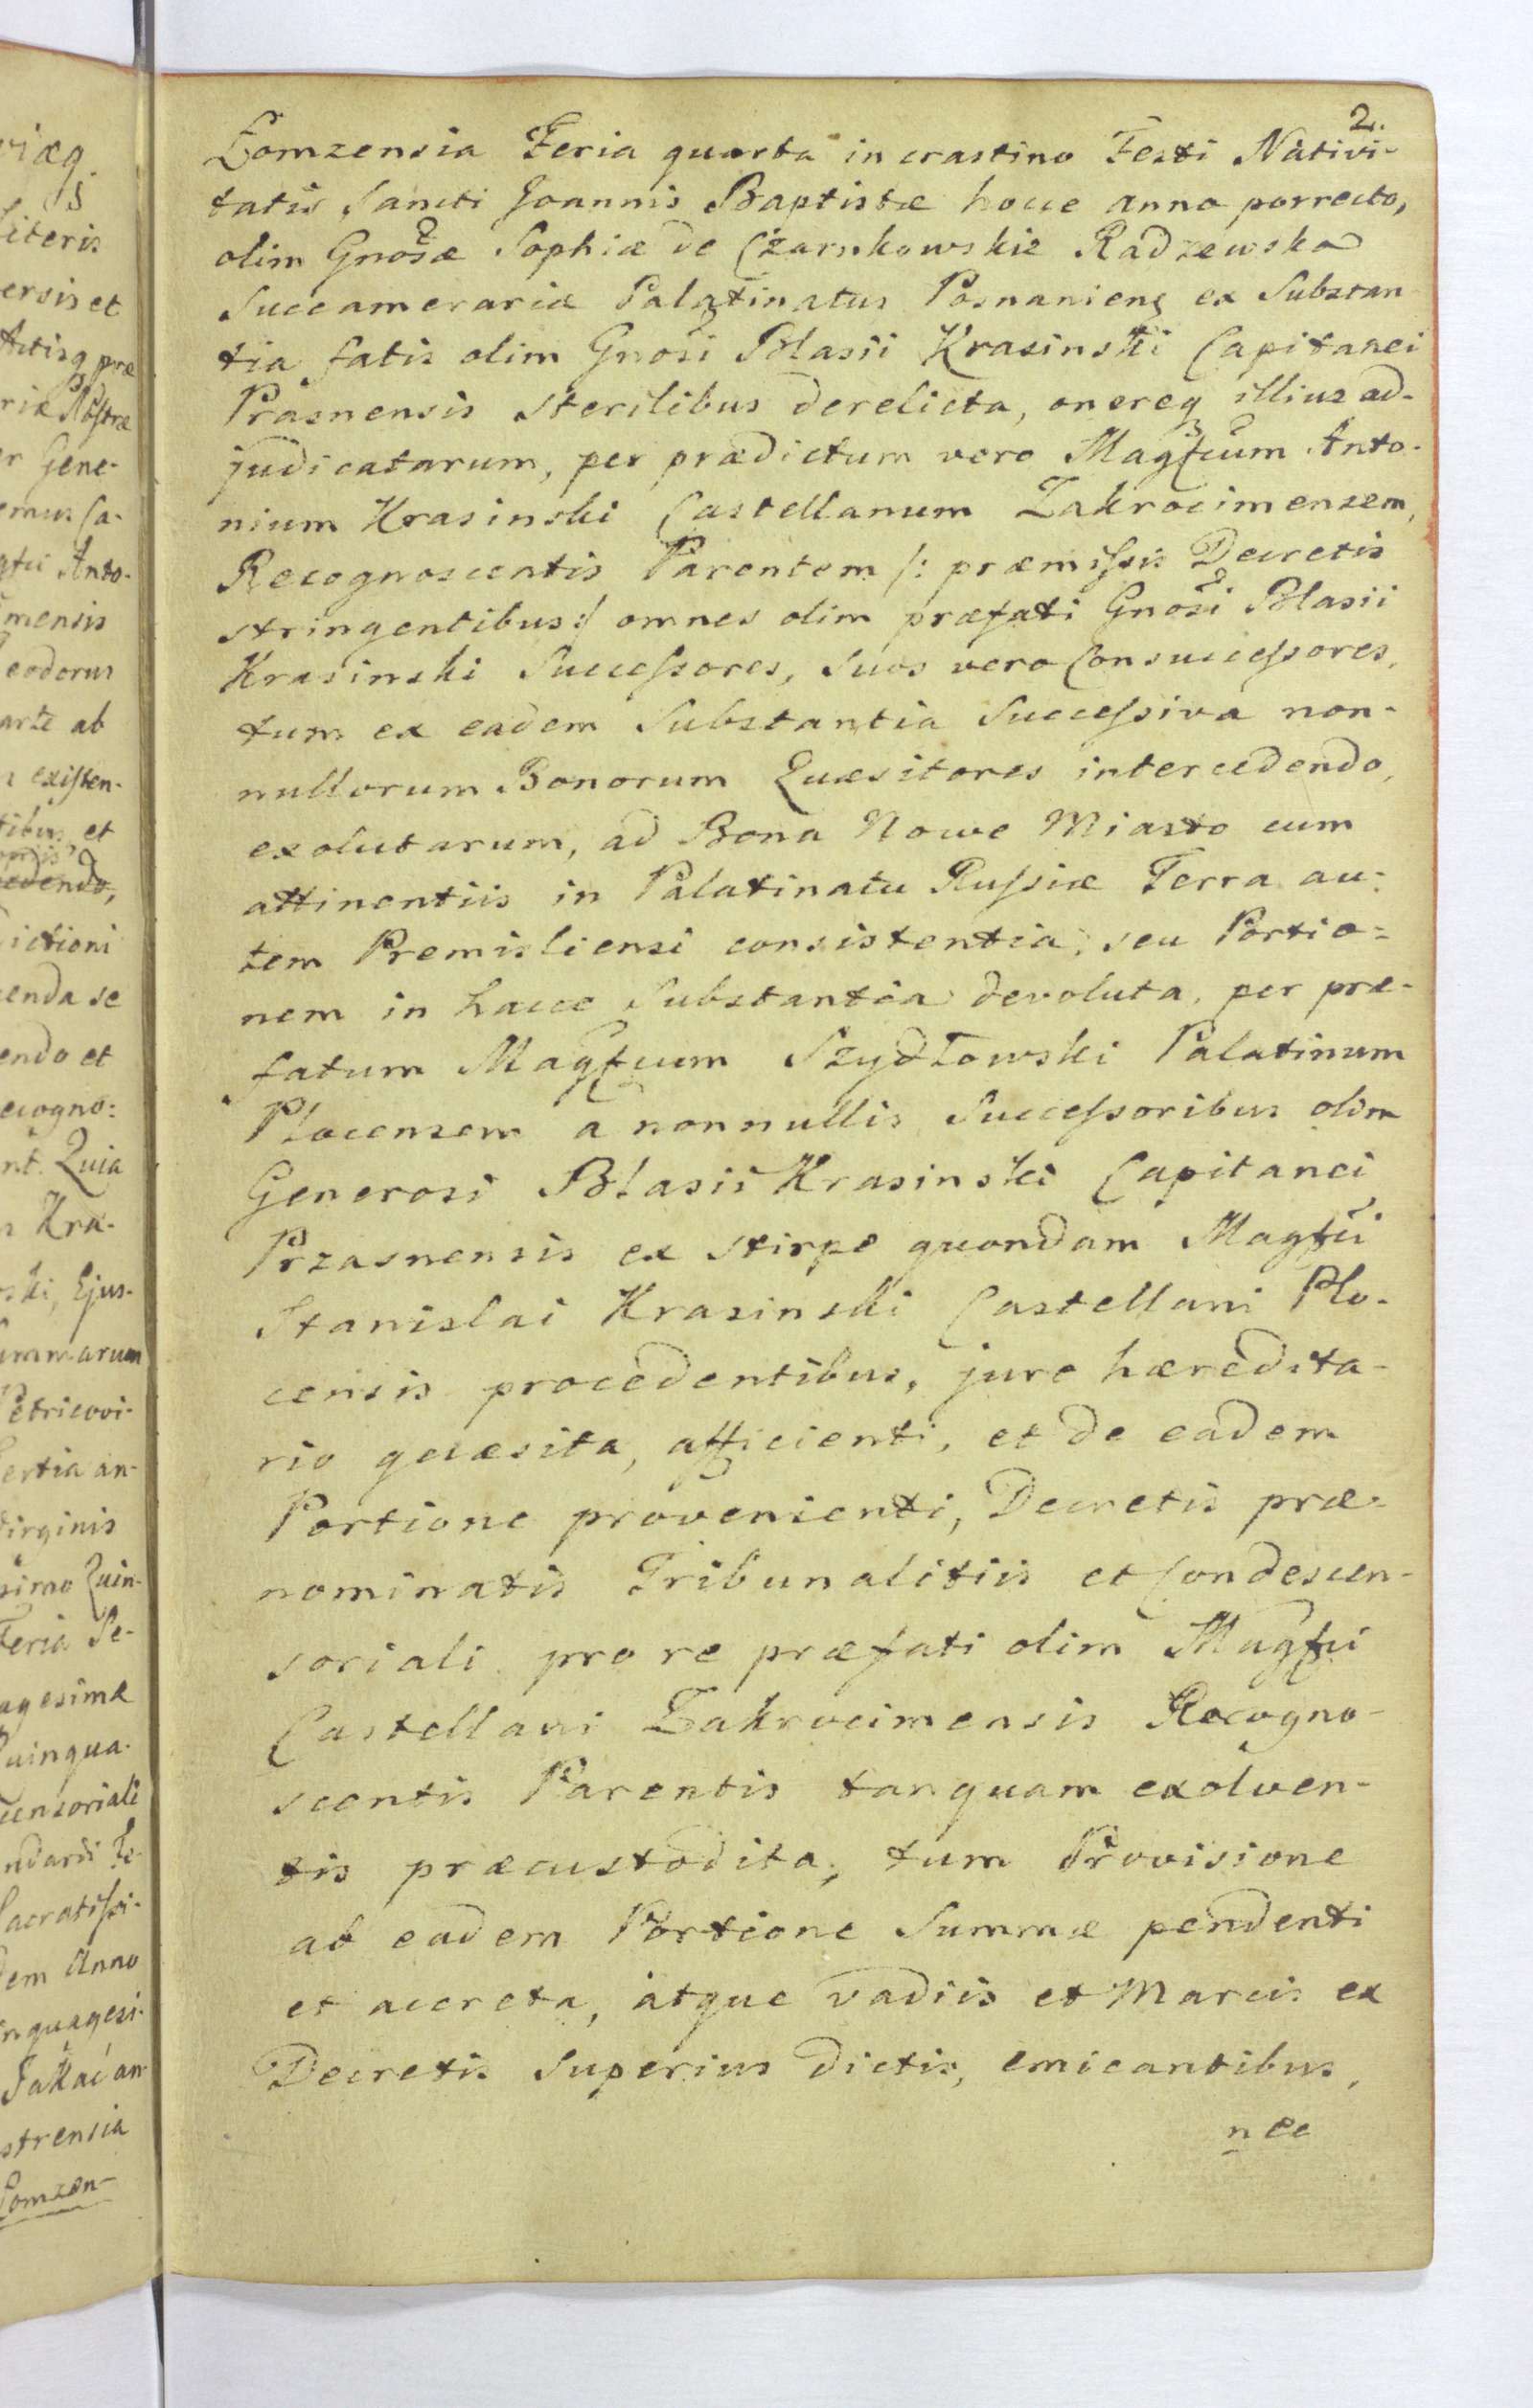 2.
Łomzensia Feria quarta in crastino Festi Nativi-
tatis Sancti Joannis Baptistæ hocce anno porrecto,
olim Gnosæ Sophiæ de Czarnkowskie Radzewska
Succamerariæ Palatinatus Posnaniens ex Substan
tia fatis olim Gnosi Blasii Krasinski Capitanei
Prasnensis sterilibus derelicta, onereq illius ad-
judicatarum, per prædictum vero Magfcum Anto-
nium Krasinski Castellanum Zakrocimensem,
Recognoscentis Parentem /: præmissis Decretis
stringentibus :/ omnes olim præfati Gnosi Blasii
Krasinski Successores, suos vero Consuccessores,
tum ex eadem Substantia Successiva non-
nullorum Bonorum Quæsitores intercedendo,
exolutarum, ad Bona Nowe Miasto cum
attinentiis in Palatinatu Russiæ Terra au-
tem Premisliensi consistentia, seu Portio-
nem in hacce Substantia devoluta, per præ-
fatum Magfcum Szydłowski Palatinum
Plocensem a nonnullis Successoribus olim
Generosi Blasii Krasinski Capitanei
Przasnensis ex stirpe quondam Magfci
Stanislai Krasinski Castellani Plo-
censis procedentibus, jure hæredita-
rio quæsita, afficienti, et de eadem
Portione provenienti, Decretis præ-
nominatis Tribunalitiis et Condescen-
soriali pro re præfati olim Magfci
Castellani Zakrocimensis Recogno-
scentis Parentis tanquam exolven-
tis præcustodita, tum Provisione
ab eadem Portione Summæ pendenti
et accreta, atque vadiis et Marcis ex
Decretis Superius dictis, emicantibus,
nec